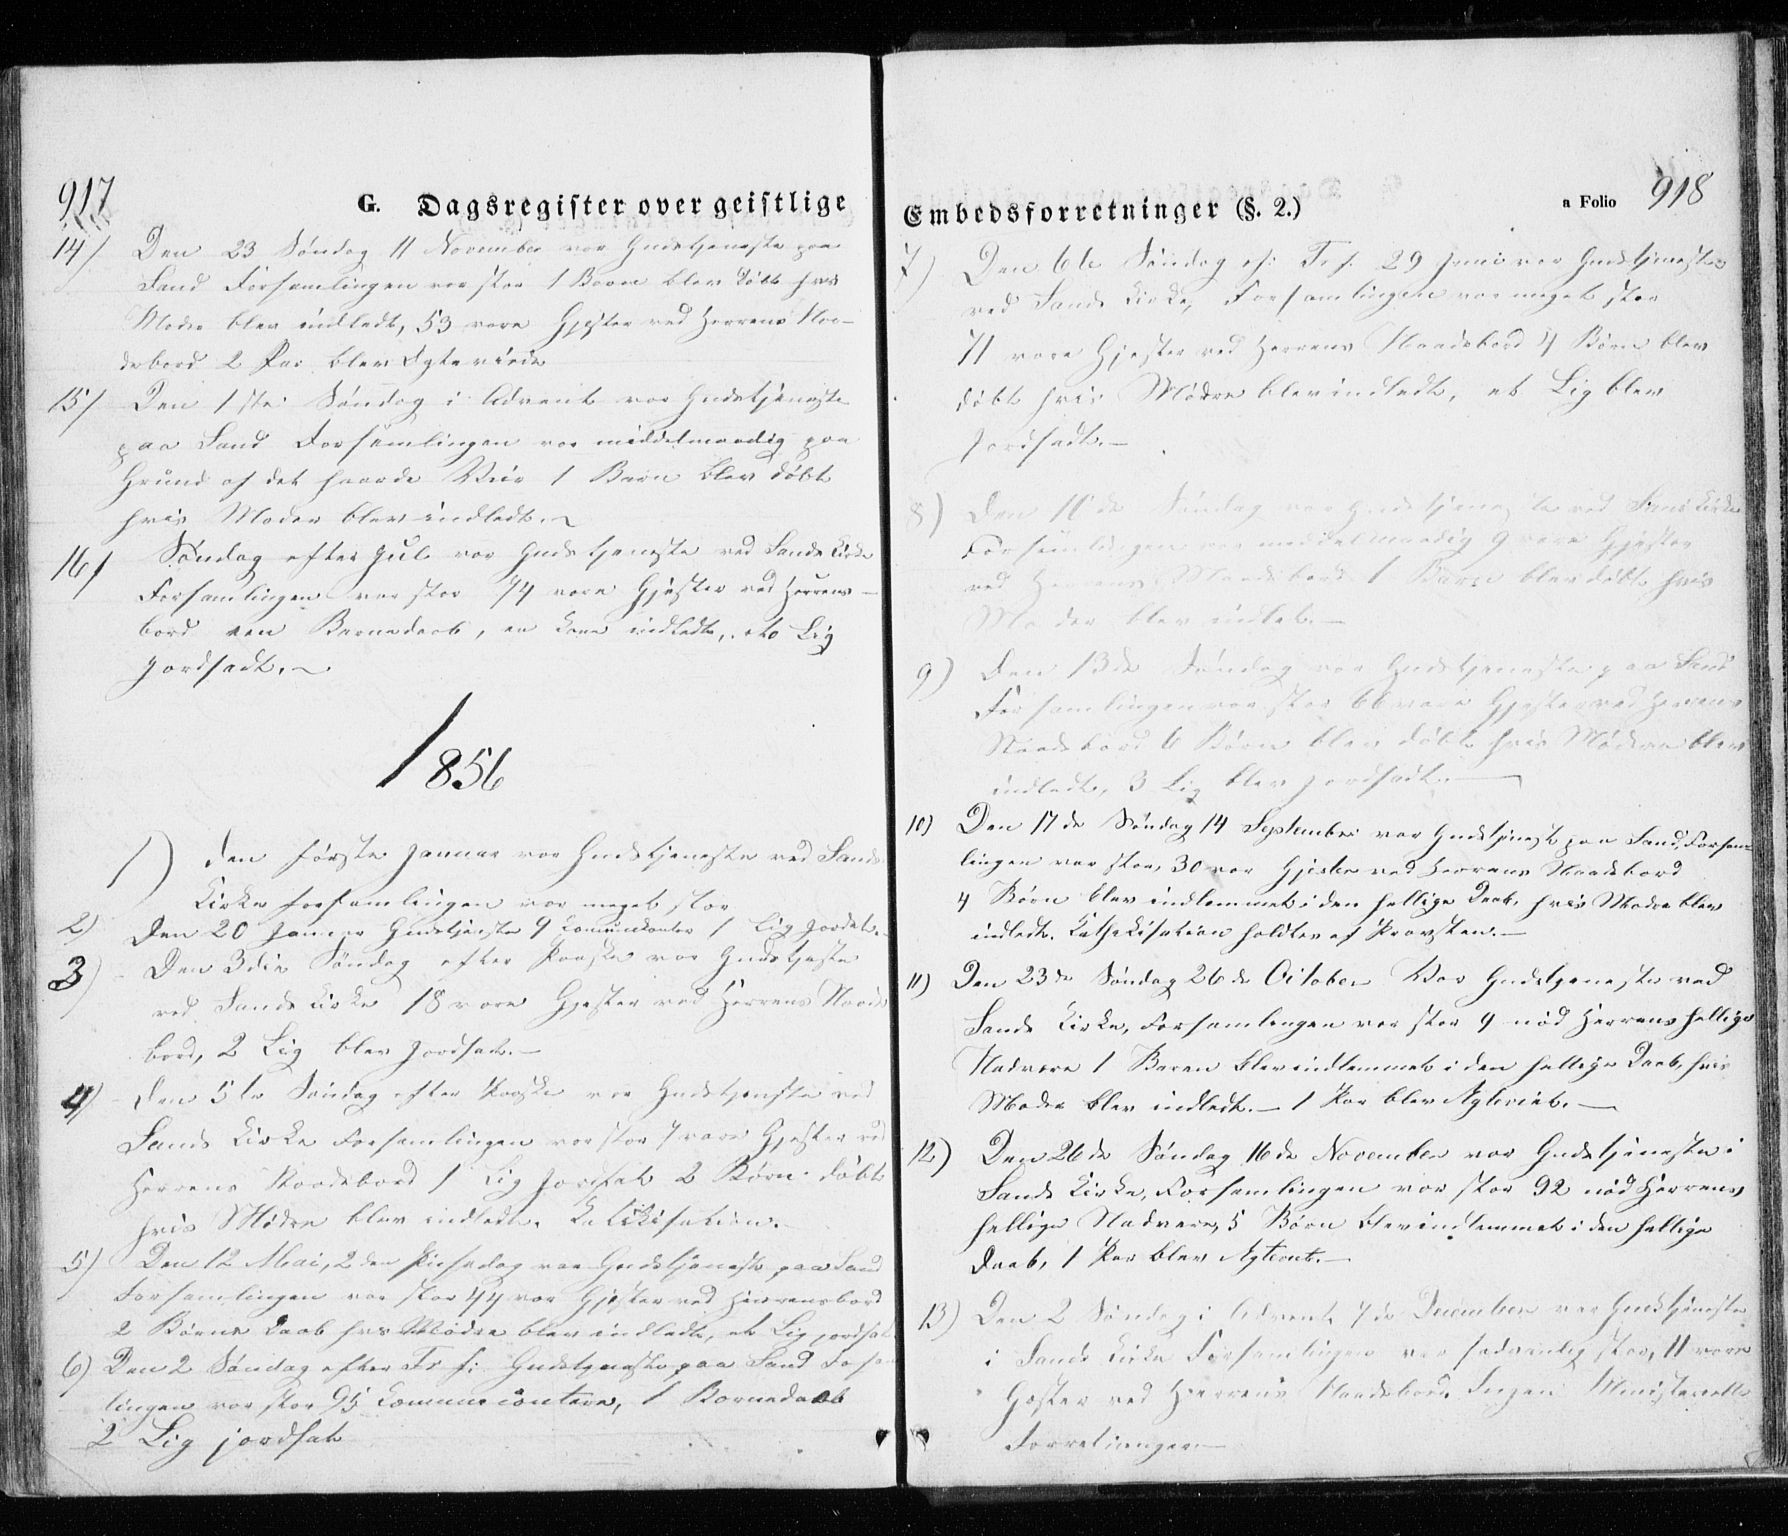 917
G. Dagsregister over geistlige
14) Den 23 Søndag 11 November var Gudstjeneste paa
Sand Forsamlingen var stor 1 Barn blev døbt hvis
Moder blev indledt, 53 vare Gjester ved Herrens Naa-
debord 2 Par blev Egteviede
15) Den 1ste Søndag i Advent var Gudstjeneste
paa Sand Forsamlingen var middelmaadig paa
Grund af det haarde Veir 1 Barn blev døbt
hvis Moder blev indledt.
16) Søndag efter Jul var Gudstjeneste ved Sands Kirke
Forsamlingen var stor 74 vare Gjester ved Herrens-
bord een Barnedaab, en Kone indledt, Lig
jordfæst.
1856
1) Den første Januar var Gudstjeneste ved Sands
Kirke forsamlingen var meget stor
2) Den 20 Januar Gudstjeneste 9 1 Lig
3) Den 3die Søndag efter Paaske var Gudstjeneste
ved Sands Kirke 18 vare Gjester ved Herrens Naade
bord, 2 Lig blev jordfæst.
4) Den 5te Søndag efter Paaske var Gudstjeneste ved
Sands Kirke Forsamlingen var stor 7 vare Gjester ved
Herrens Naadebord 1 Lig jordfæst 2 Børn døbt
hvis Mødre blev indledt. Katekisation.
5) Den 12 Mai, 2den Pinsedag var Gudstjeneste paa Sand
Forsamlingen var stor 44 var Gjester ved Herrensbord
2 Børns Daab hvis Mødre blev indledt, et Lig
6) Den 2 Søndag efter Tr. f: Gudstjeneste paa Sand
lingen var stor 95 Communicantere, 1 Barnedaab
2 Lig jordfæst
Embedsforretninger (§. 2.)
a Folio 918
7) Den 6te Søndag ef: Tr. f. 29 Juni var Gudstjeneste
ved Sands Kirke, Forsamlingen var meget stor
71 vare Gjester ved Herrens Naadebord 4 Børn blev
døbt hvis Mødre blev indledt, et Lig blev
jordfæst.
8) Den 11de Søndag var Gudstjeneste ved Sands Kirke
Forsamlingen var middelmaadig 9 vare Gjester
ved Herrens Naadebord 1 Barn blev døbt hvis
Moder blev indledt.
9) Den 13de Søndag var Gudstjeneste paa Sand
Forsamlingen var stor 66 vare Gjester ved Herrens
Naadebord 6 Børn blev døbt hvis Mødre blev
indledt, 3 Lig blev jordfæst.
10) Den 17de Søndag 14 September var Gudstjenest paa Sand, Forsam-
lingen var stor, 30 var Gjester ved Herrens Naadebord
4 Børn blev indlemmet i den hellige Daab, hvis Mødre blev
indledt. Kathekisation holdtes af Provsten.
11) Den 23de Søndag 26de October Var Gudstjeneste ved
Sands Kirke, Forsamlingen var stor 9 nød Herrens hellige
Nadvere 1 Barn blev indlemmet i den hellige Daab, hvis
Moder blev indledt. 1 Par blev
12) Den 26de Søndag 16de November var Gudstjeneste i
Sands Kirke, Forsamlingen var stor 92 nød Herrens
hellige Nadvere, 5 Børn blev indlemmet i den hellige
Daab, 1 Par blev
13) Den 2 Søndag i Advent 7de December var Gudstjeneste
i Sands Kirke Forsamlingen var sædvanlig stor, 11 vare
Gjester ved Herrens Naadebord. Ingen Ministerielle
Forretninger.